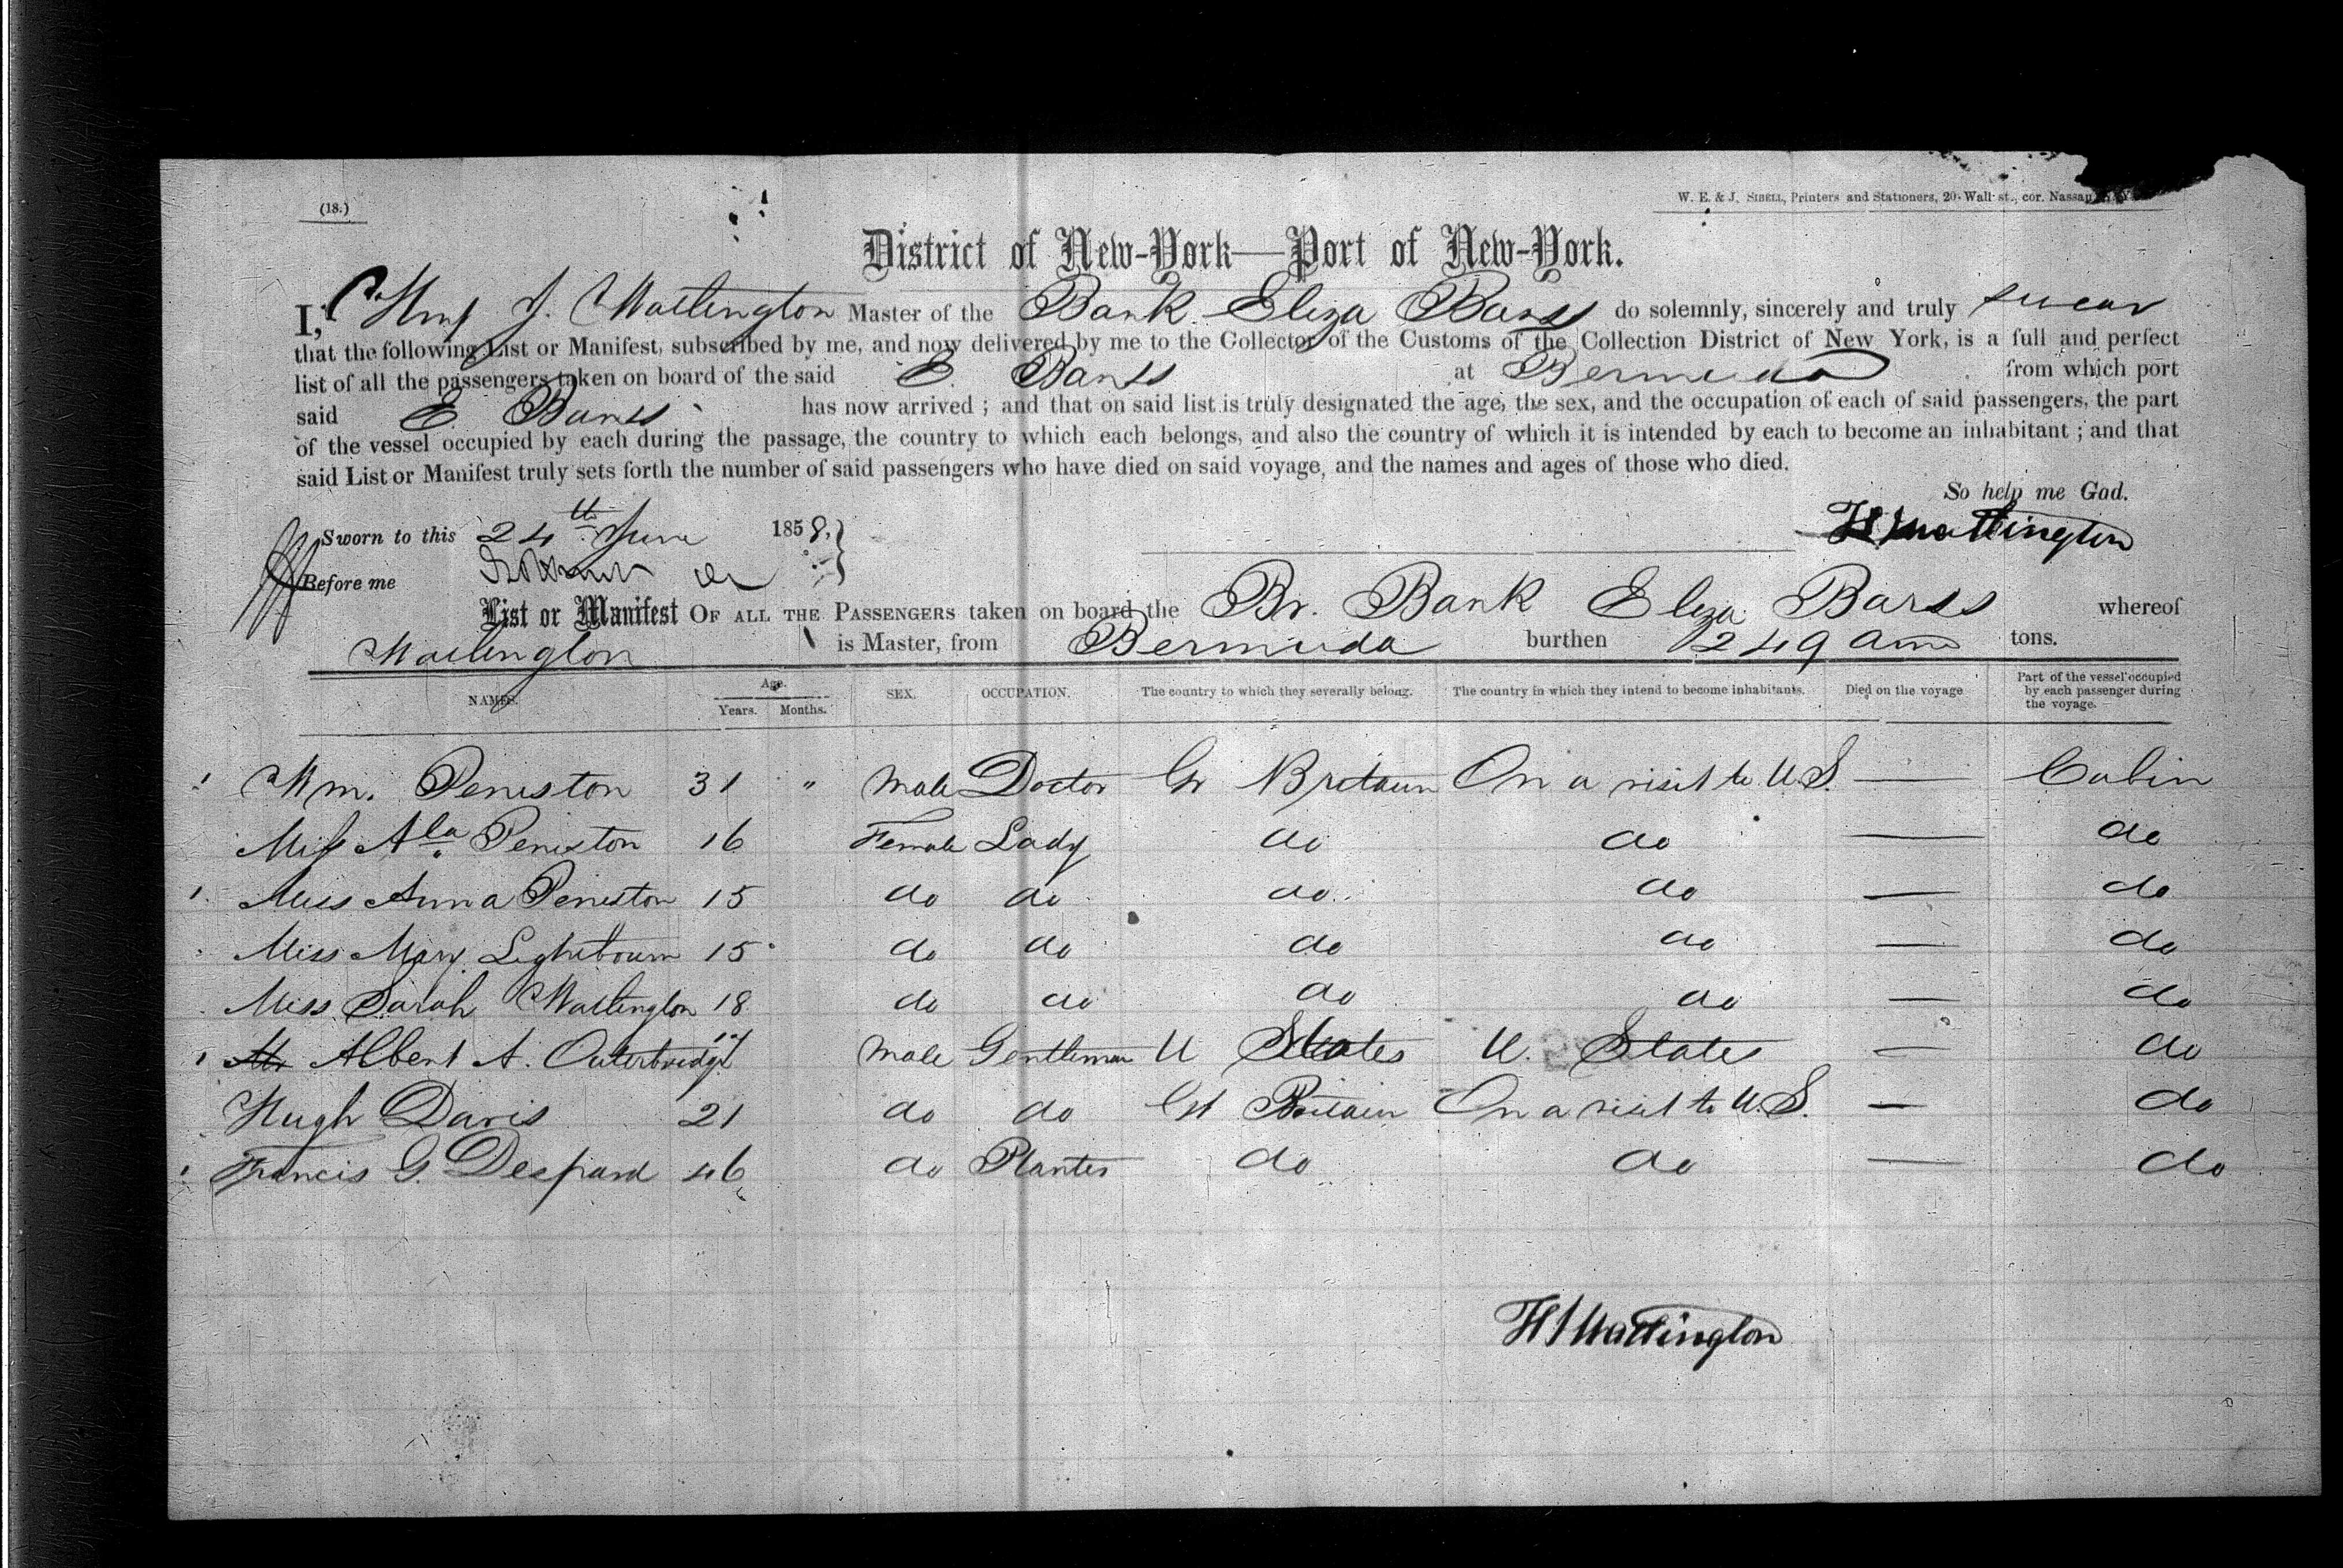 (18.)
W. E. & J. SIBELL, Printers and Stationers, 20 Wall st., cor. Nassau
District of New-York—Port of New-York.
I, J. Watlington Master of the Bark Eliza Barss do solemnly, sincerely and truly swear
that the following List or Manifest, subscribed by me, and now delivered by me to the Collector of the Customs of the Collection District of New York, is a full and perfect
list of all the passengers taken on board of the said E. Barss at Bermuda from which port
said E Barss has now arrived ; and that on said list is truly designated the age, the sex, and the occupation of each of said passengers, the part
of the vessel occupied by each during the passage, the country to which each belongs, and also the country of which it is intended by each to become an inhabitant ; and that
said List or Manifest truly sets forth the number of said passengers who have died on said voyage, and the names and ages of those who died.
So help me God.
Sworn to this 24th June 1858. Watlington
Before me
List or Manifest OF ALL THE PASSENGERS taken on board the Br. Bark Eliza Barss whereof
Watlington is Master, from Bermuda burthen 249 tons.
NAMES. Age. Years. Months. SEX. OCCUPATION. The country to which they severally belong. The country in which they intend to become inhabitants. Died on the voyage Part of the vessel occupied by each passenger during the voyage.
Wm. Peniston 31 " Male Doctor Gr Britain On a visit to U.S. — Cabin
Miss Ala Peniston 16 Female Lady do do — do
Miss Anna Peniston 15 do do do do — do
Miss Mary Lightbourn 15 do do do do — do
Miss Sarah Watlington 18 do do do do — do
Albert A. Outerbridge Male Gentleman U States U. States — do
Hugh Davis 21 do do Gt Britain On a visit to U.S. — do
Francis G. Despard 46 do Planter do do — do
Watlington